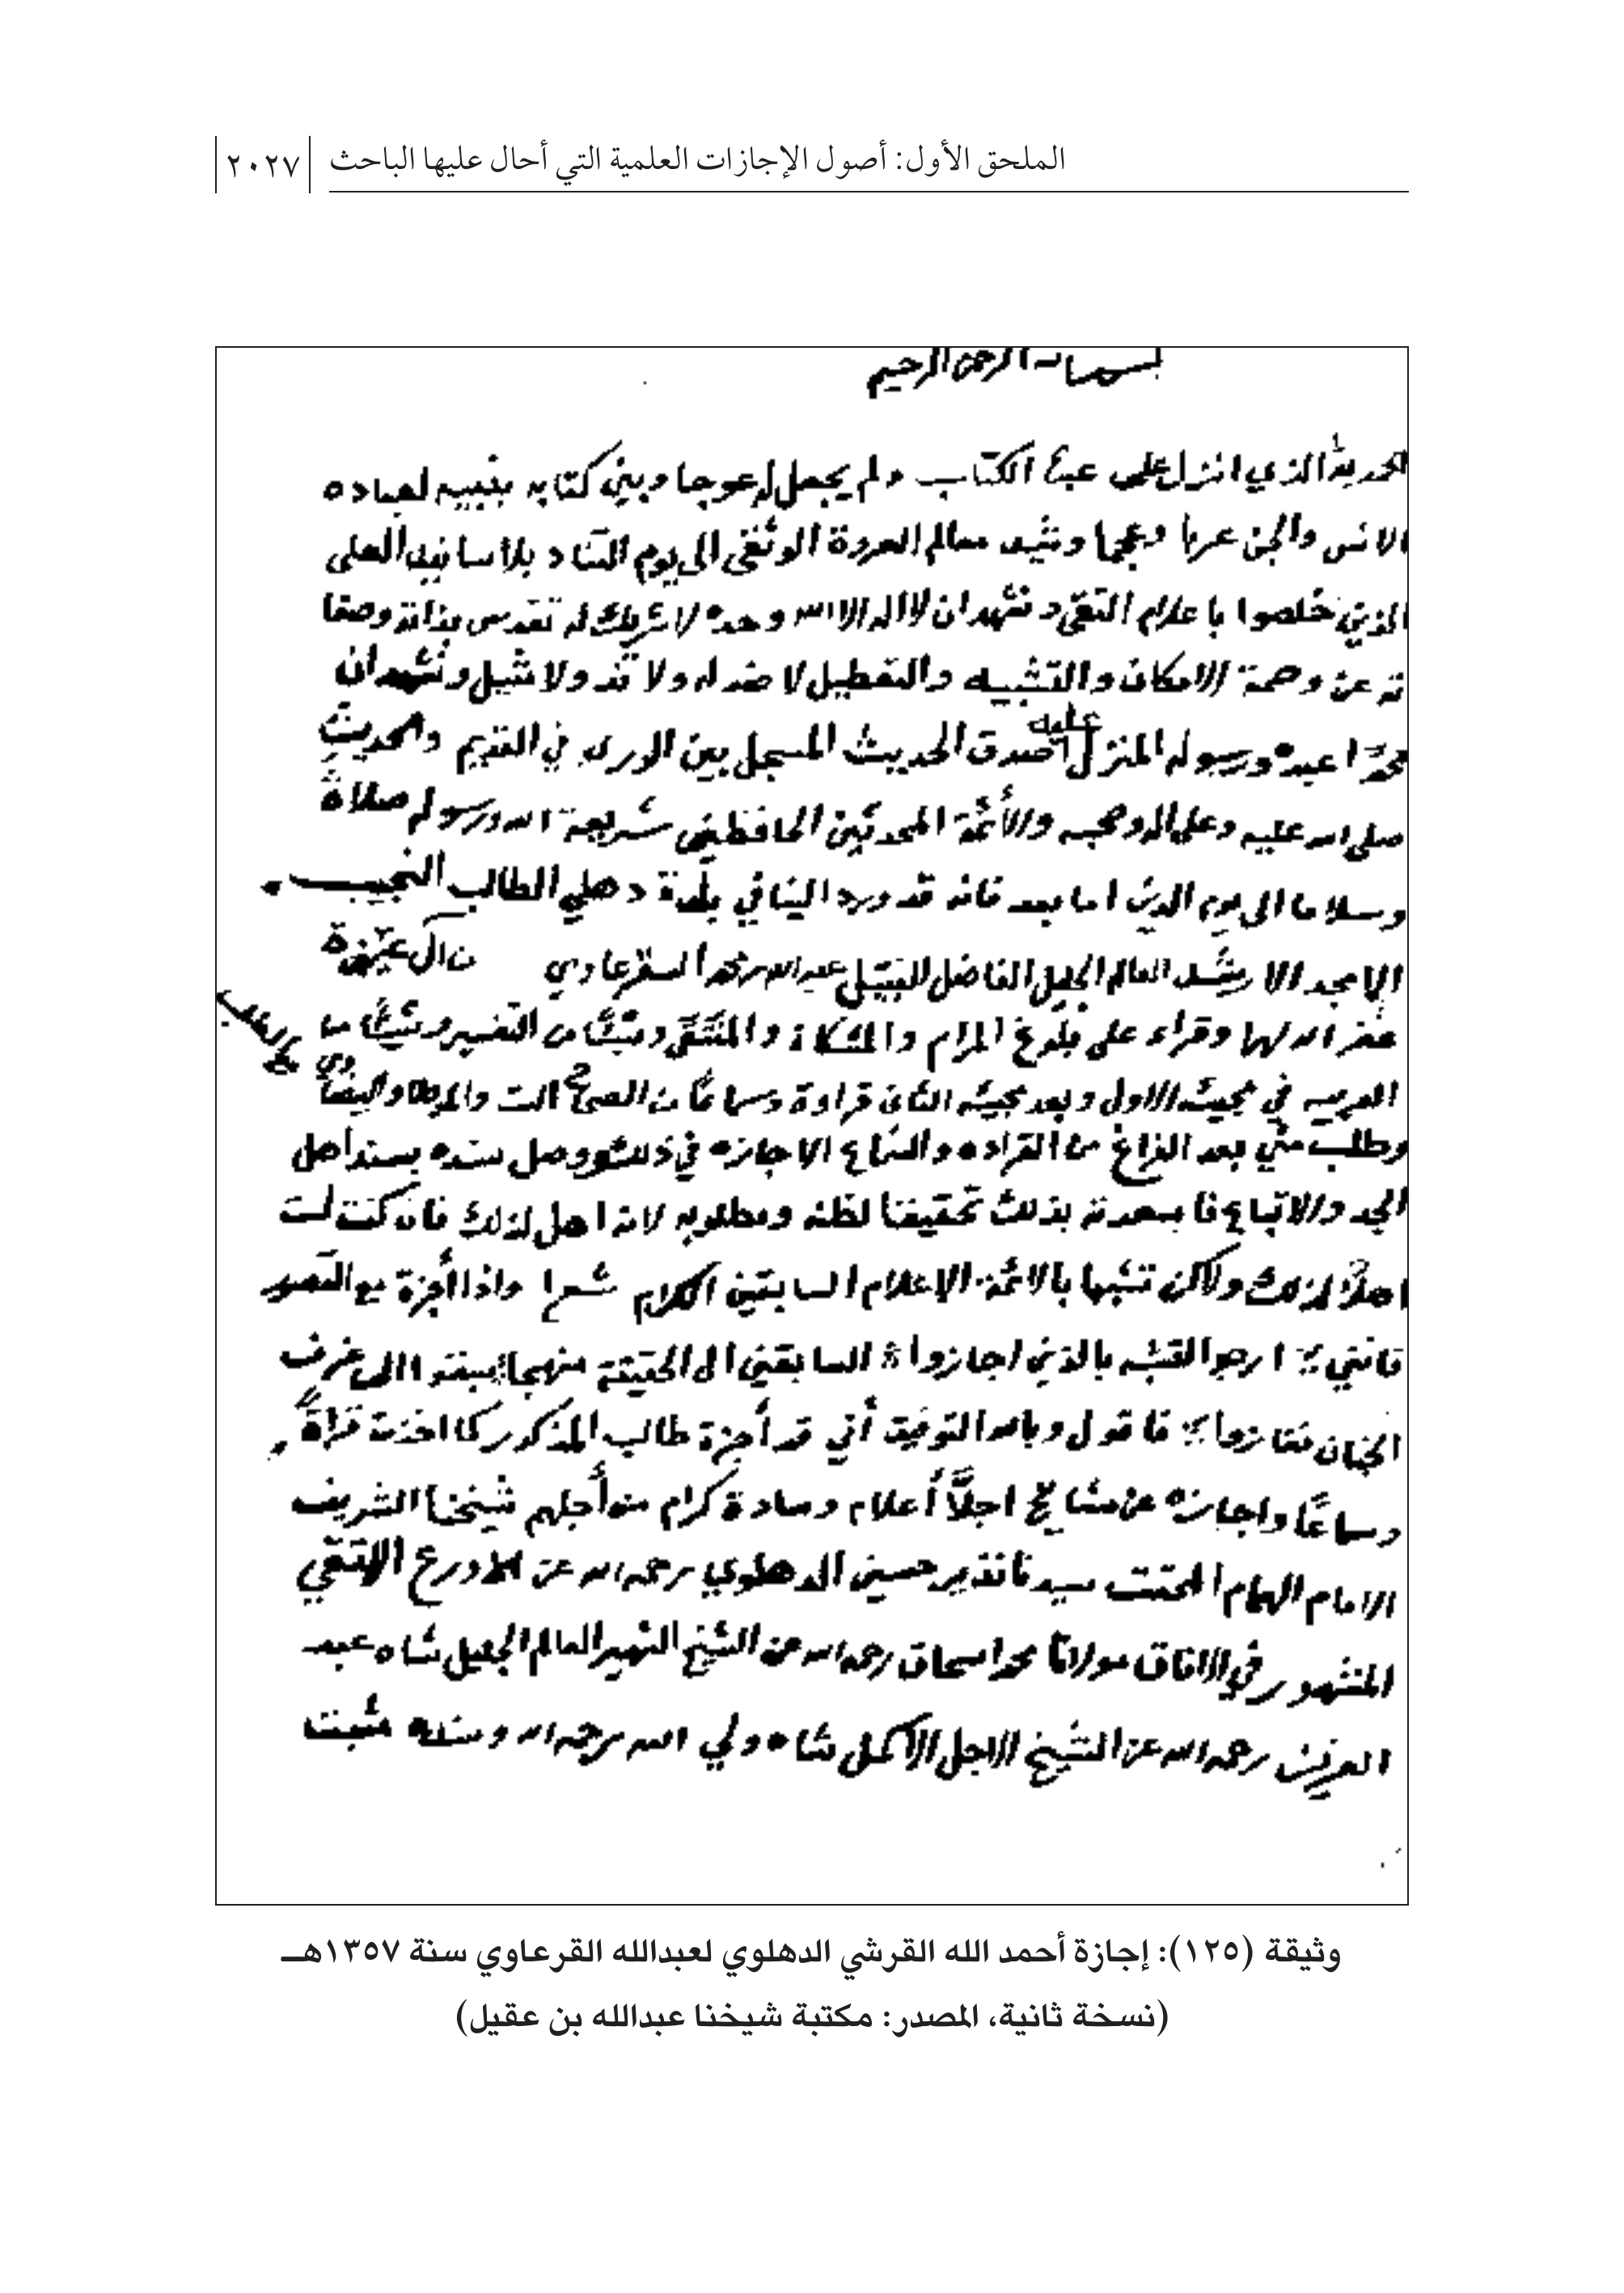 الملحق الأول: أصول الإجازات العلمية التي أحال عليها الباحث ٢٠٢٧
بسم الله الرحمن الرحيم
الحمد لله الذي انزل على عبده الكتاب ولم يجعل له عوجا وبين كتابه بنبيه لعباده
الانس والجن عربا وعجما وشيد معالم العروة الوثقى الى يوم التناد بلأسانيد العلى
الذين خلصوا باعلام التقى ونشهد ان لا اله الا الله وحده لا شريك له تقدس بذاته وصفا
ته عن وصمة الامكان والتشبيه والتعطيل لا ضد له ولا ند ولا مثيل ونشهد ان
محمدا عبده ورسوله المنزل عليه اصدق الحديث المسجل بين الورى في القديم والحديث
صلى الله عليه وعلى اله وصحبه والأئمة المحدثين الحافظين شريعة الله ورسوله صلاة
وسلاما الى يوم الدين اما بعد فانه قد ورد الينا في بلدة دهلي الطالب النجيب
الامجد الارشد العالم الجليل الفاضل النبيل عبد الله بن محمد القرعاوي من آل عنيزة
غفر الله لهما وقراء على بلوغ المرام والمشكاة والمنتقى وشيئًا من التفسير وشيئًا من
العربيه في مجيئه الاول وبعد مجيئه الثاني قراءة وسماعًا من الصحاح الست والموطا وايضًا
وطلب مني بعد الفراغ من القراءه والسماع الاجازه في ذلك ووصل سنده بسند اهل
الجد والاتباع فا بسعدته بذلك تحقيقا لظنه ومطلوبه لانه اهل لذلك فان كنت لست
اهلًا لذلك ولاكن تشبها بالائمة الاعلام السابقين الكرام شعرا واذا أجزة مع القصور
فانني ارجو التشبه بالذين اجازوا السابقين الى الحقيقة منهجا سبقوا الى غرف
الجنان ففازوا فاقول وبالله التوفيق أني قد أجزة طالب المذكور كما اخذت قرأةً
وسماعًا واجازه عن مشايخ اجلّاً أعلام وسادة كرام من أجلهم شيخنا الشريف
الامام الهمام المحقق سيدنا نذير حسين الدهلوي رحمه الله عن الاورع الاتقي
المشهور في الافاق مولانا محمد اسحاق رحمه الله عن الشيخ الشهير العالم الجليل شاه عبد
العزيز رحمه الله عن الشيخ الاجل الاكمل شاه ولي الله رحمه الله وسنده مثبت
وثيقة (١٢٥): إجازة أحمد الله القرشي الدهلوي لعبدالله القرعاوي سنة ١٣٥٧هـ
(نسخة ثانية، المصدر: مكتبة شيخنا عبدالله بن عقيل)